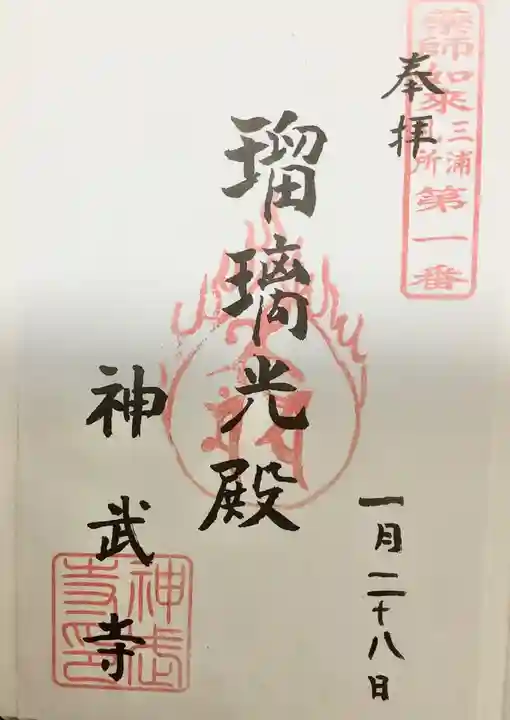 薬師如來
三浦
札所
第一番
奉拝
瑠璃光殿
一月二十八日
神武寺
神武
寺印